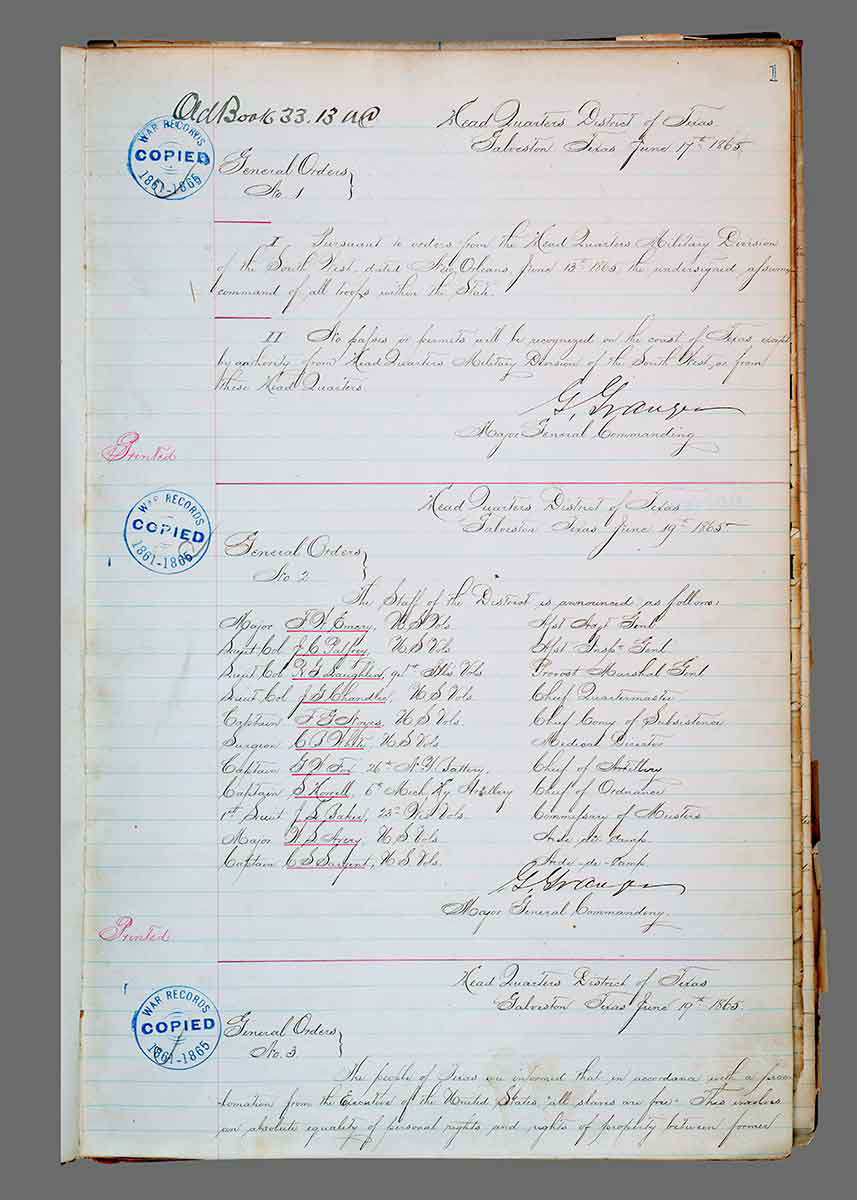 1
Old Book 33. 13 A.C.
Head Quarters District of Texas
Galveston Texas June 17th 1865.
WAR RECORDS
COPIED
1861-1865
General Orders
No. 1
I Pursuant to orders from the Head Quarters Military Division
of the South West dated New Orleans, June 13th 1865, the undersigned assumes
command of all troops within the State.
II No passes or permits will be recognized on the coast of Texas except
by authority from Head Quarters Military Division of the South West, or from
these Head Quarters.
G. Granger
Major General Commanding
Printed
Head Quarters District of Texas
Galveston Texas June 19th 1865.
WAR RECORDS
COPIED
1861-1865
General Orders
No. 2
The Staff of the District is announced as follows:
Major F W Emery, U S Vols. Asst Adjt Genl
Lieut Col J. C. Palfrey, U S Vols Asst Inspr Genl
Lieut Col Laughlin, 94th Ills Vols. Provost Marshal Genl
Lieut Col J G Chandler, U S Vols. Chief Quartermaster
Captain F G Noyes, U S Vols. Chief Comy of Subsistence
Surgeon C B White, U S Vols Medical Director
Captain G W Fox, 26th N. Y. Battery, Chief of Artillery
Captain S Howell, 6th Mich. Hy Artillery Chief of Ordnance
1st Lieut J. L Baker, 23d Vols Commissary of Musters
Major W L Avery, U S Vols Aide de Camp
Captain C S Sargent, U S Vols. Aide-de-Camp
G. Granger
Major General Commanding.
Printed
Head Quarters District of Texas
Galveston Texas June 19th 1865.
WAR RECORDS
COPIED
1861-1865
General Orders
No. 3
The people of Texas are informed that in accordance with a proc-
lamation from the Executive of the United States "all slaves are free." This involves
an absolute equality of personal rights and rights of property between former